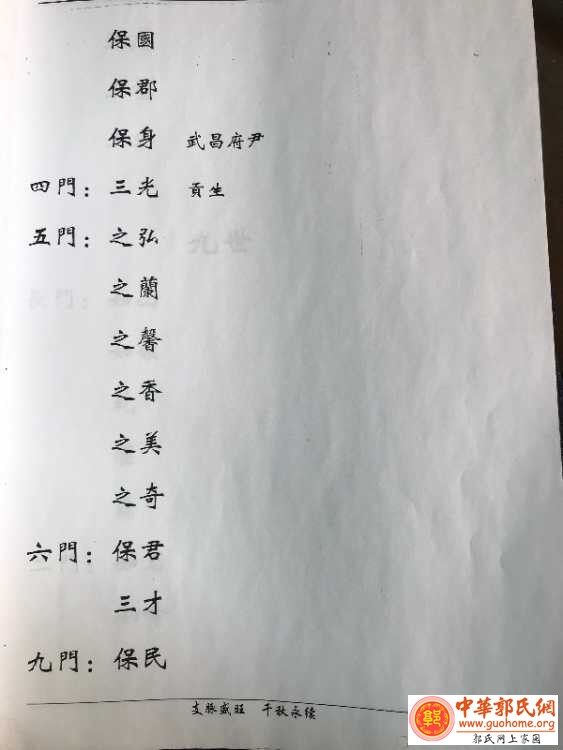 保國
保郡
保身 武昌府尹
四門：三光 貢生
五門：之弘
之蘭
之馨
之香
之美
之奇
六門：保君
三才
九門：保民
支脈盛旺 千秋永续
中華郭氏網
www.guohome.org
郭氏网上家园